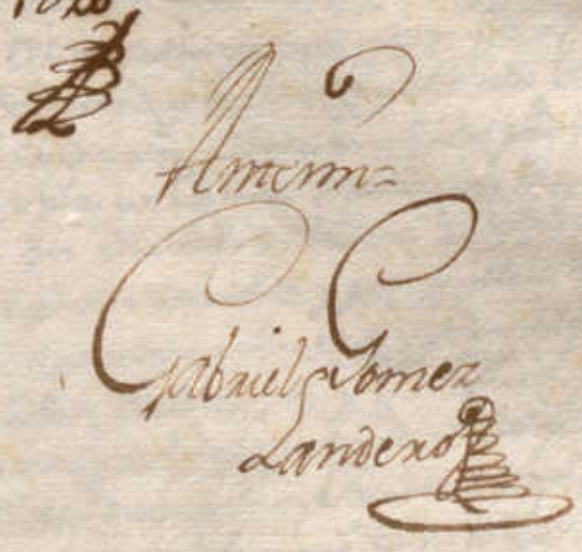 Ante mi =
Gabriel Gomez
Landero